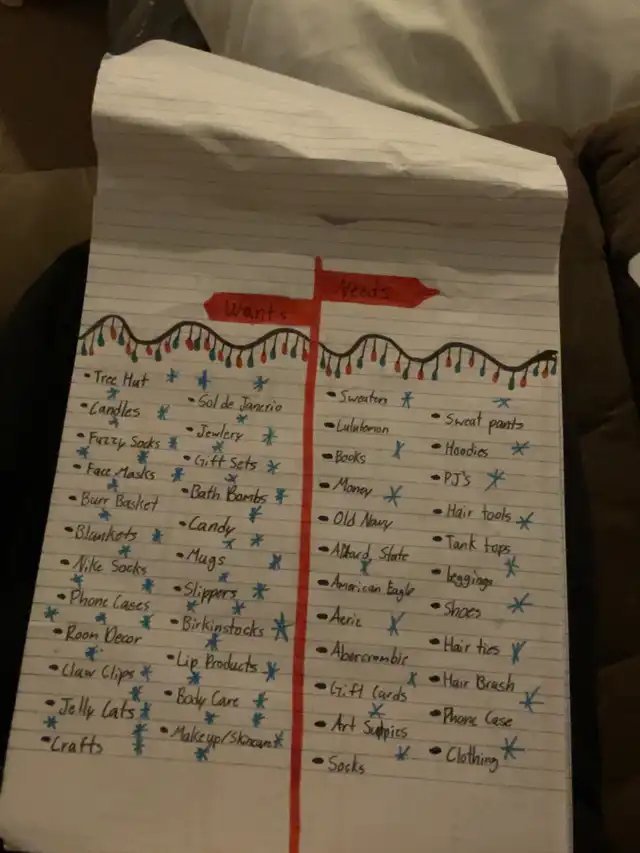 Needs
Wants
• Tree Hut
• Candles
• Fuzzy Socks
• Face Masks
• Burr Basket
• Blankets
• Nike Socks
• Phone Cases
• Room Decor
• Claw Clips
• Jelly Cats
• Crafts
• Sol de Janerio
• Jewlery
• Gift Sets
• Bath Bombs
• Candy
• Mugs
• Slippers
• Birkinstocks
• Lip Products
• Body Care
• Makeup/Skincare
• Sweaters
• Lululemon
• Books
• Money
• Old Navy
• State
• American Eagle
• Aerie
• Abercrombie
• Gift Cards
• Art
• Socks
• Sweat pants
• Hoodies
• PJ's
• Hair tools
• Tank tops
• Leggings
• Shoes
• Hair ties
• Hair Brush
• Phone Case
• Clothing